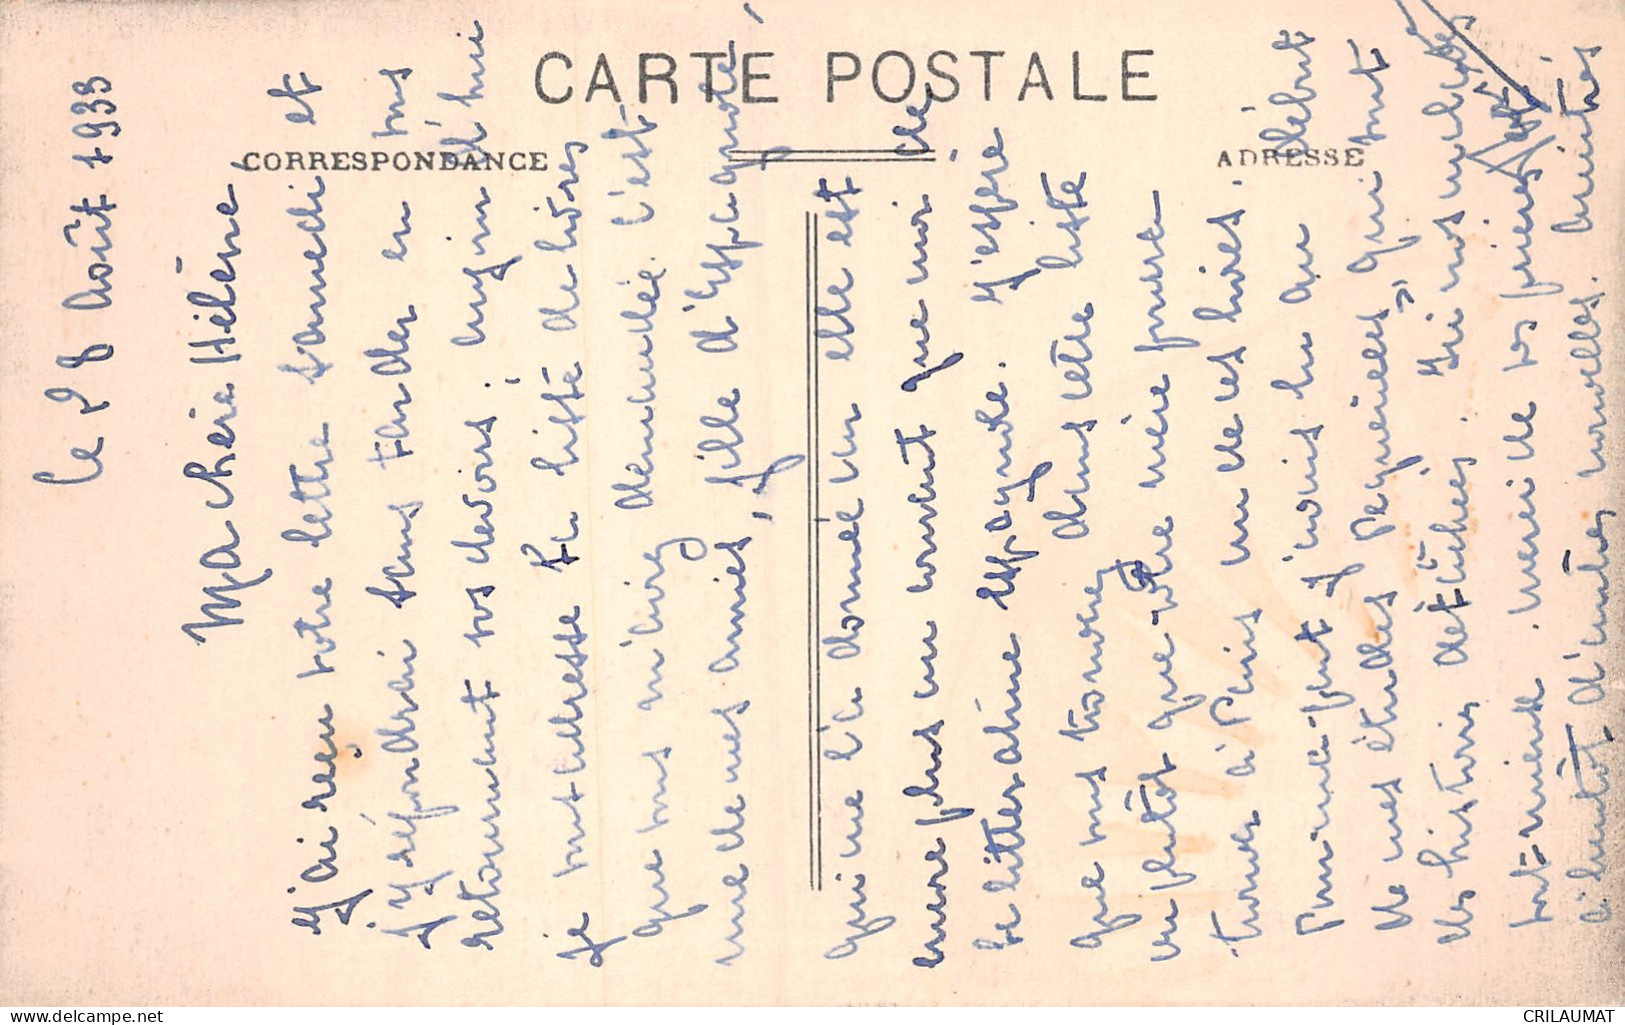 CARTE POSTALE
CORRESPONDANCE
ADRESSE
le 28 Août 1933
Ma chère Hélène
J'ai reçu votre lettre samedi et
j'y répondrai sans tarder en vous
retournant vos devoirs. aujourd'hui
je vous adresse la liste de livres
que vous m'avez demandée. C'est
une de mes amies, fille d'espagnole,
qui me l'a donnée car elle est
encore plus au courant que moi de
la littérature espagnole. J'espère
que vous trouverez dans cette liste
ou plutôt que votre mère pourra
trouver à Paris un de ces livres.
au début
de mes études Pequeñeces qui sont
des histoires détachées. Ici nos malades
vont mieux. merci de vos prières.
à bientôt d'autres nouvelles. Amitiés
CRILAUMAT